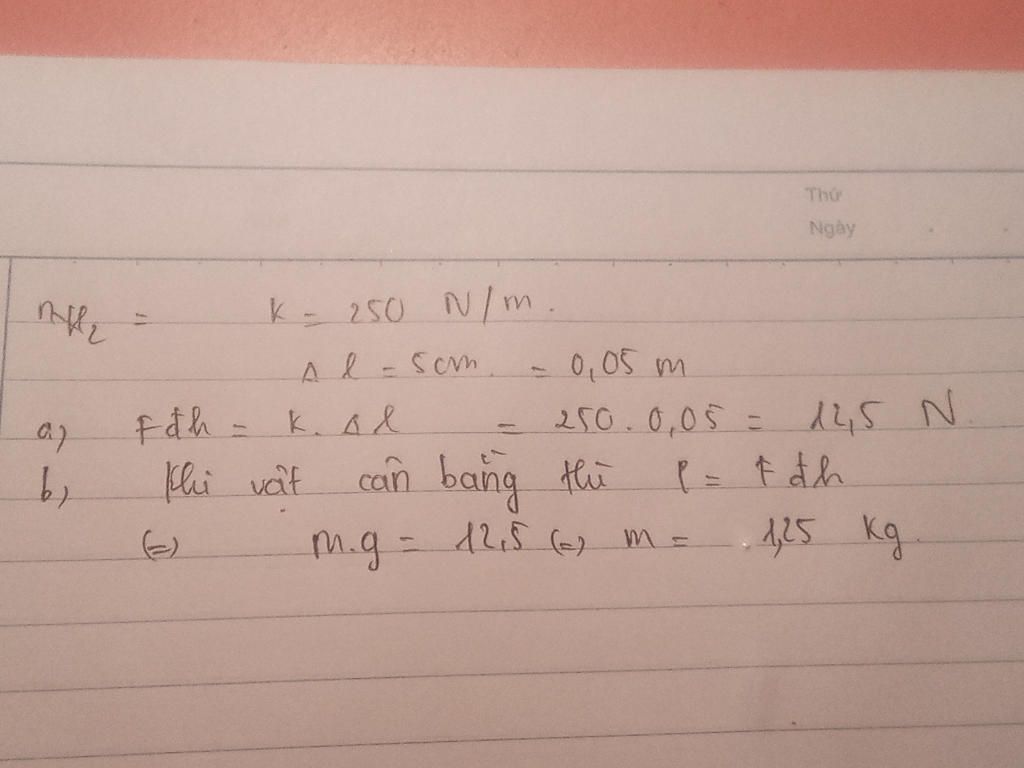 Thứ
Ngày
K = 250 N/m.
Δl = 5cm. = 0,05 m
a) Fđh = K. Δl = 250. 0,05 = 12,5 N.
b) Khi vật cân bằng thì P = Fđh
(=) m.g = 12,5 (=) m = 1,25 Kg.